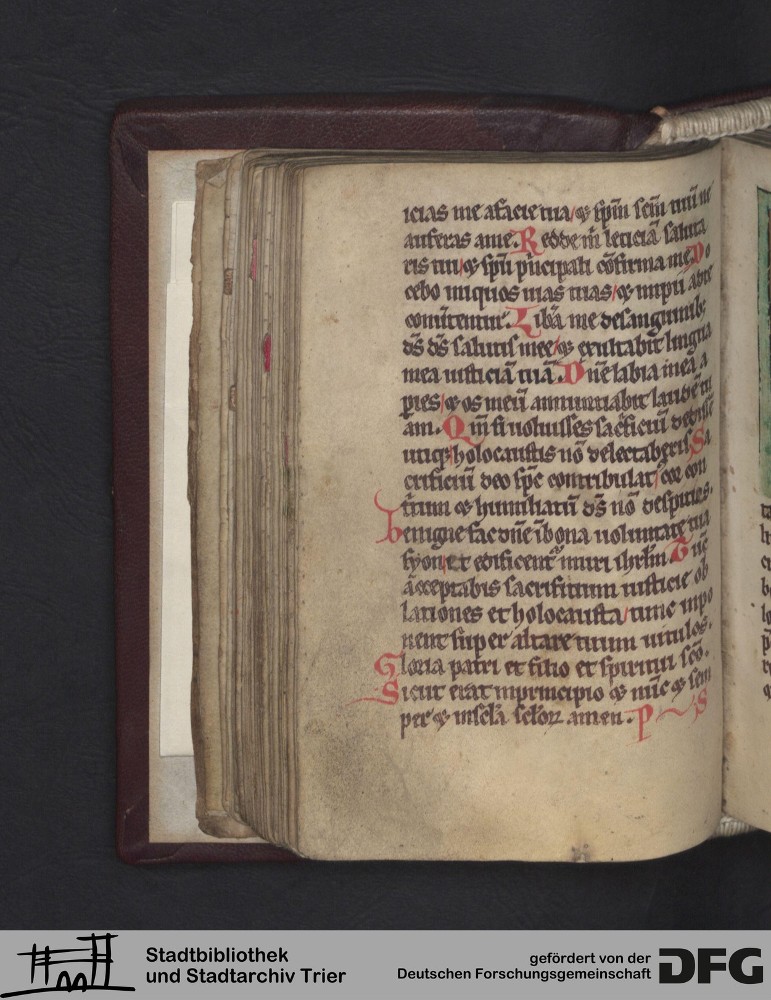 icias me afacie tua/ ⁊ sp̄m sc̄m tuū ne
auferas ame. Redde m̄ leticiā saluta
ris tui/ ⁊ sp̄u pͥncipali cōfirma me. Do
cebo iniquos uias tuas/ ⁊ impii adte
conūtentur. Libā me desanguinib;
dс̄ dс̄ salutis mee/ ⁊ exultabit lingua
mea iusticiā tuā. Dn̄e labia mea a
pies/ ⁊ os meū annuntiabit laudē tu
am. Qm̄ si uoluisses sac̄ficiū dedissē
utiqꝫ holocaustis nō delectaberis Sa
crificiū deo sp̄c contribulat/ cor con
tritum ⁊ humiliatū ds̄ nō despicies.
benigne fac dn̄e ībona uoluntate tua
syon/ ut edificent᷑ muri ihrl̄m Tūc
acceptabis sacrificium iusticie ob
lationes et holocausta/ tunc inpo
nent super altare tuum uitulos.
Gloria patri et filio et spiritui sc̄o.
Sicut erat inprincipio ⁊ nūc ⁊ sem
per ⁊ insc̄la sc̄loꝝ amen. PS
Stadtbibliothek
und Stadtarchiv Trier
gefördert von der
Deutschen Forschungsgemeinschaft
DFG